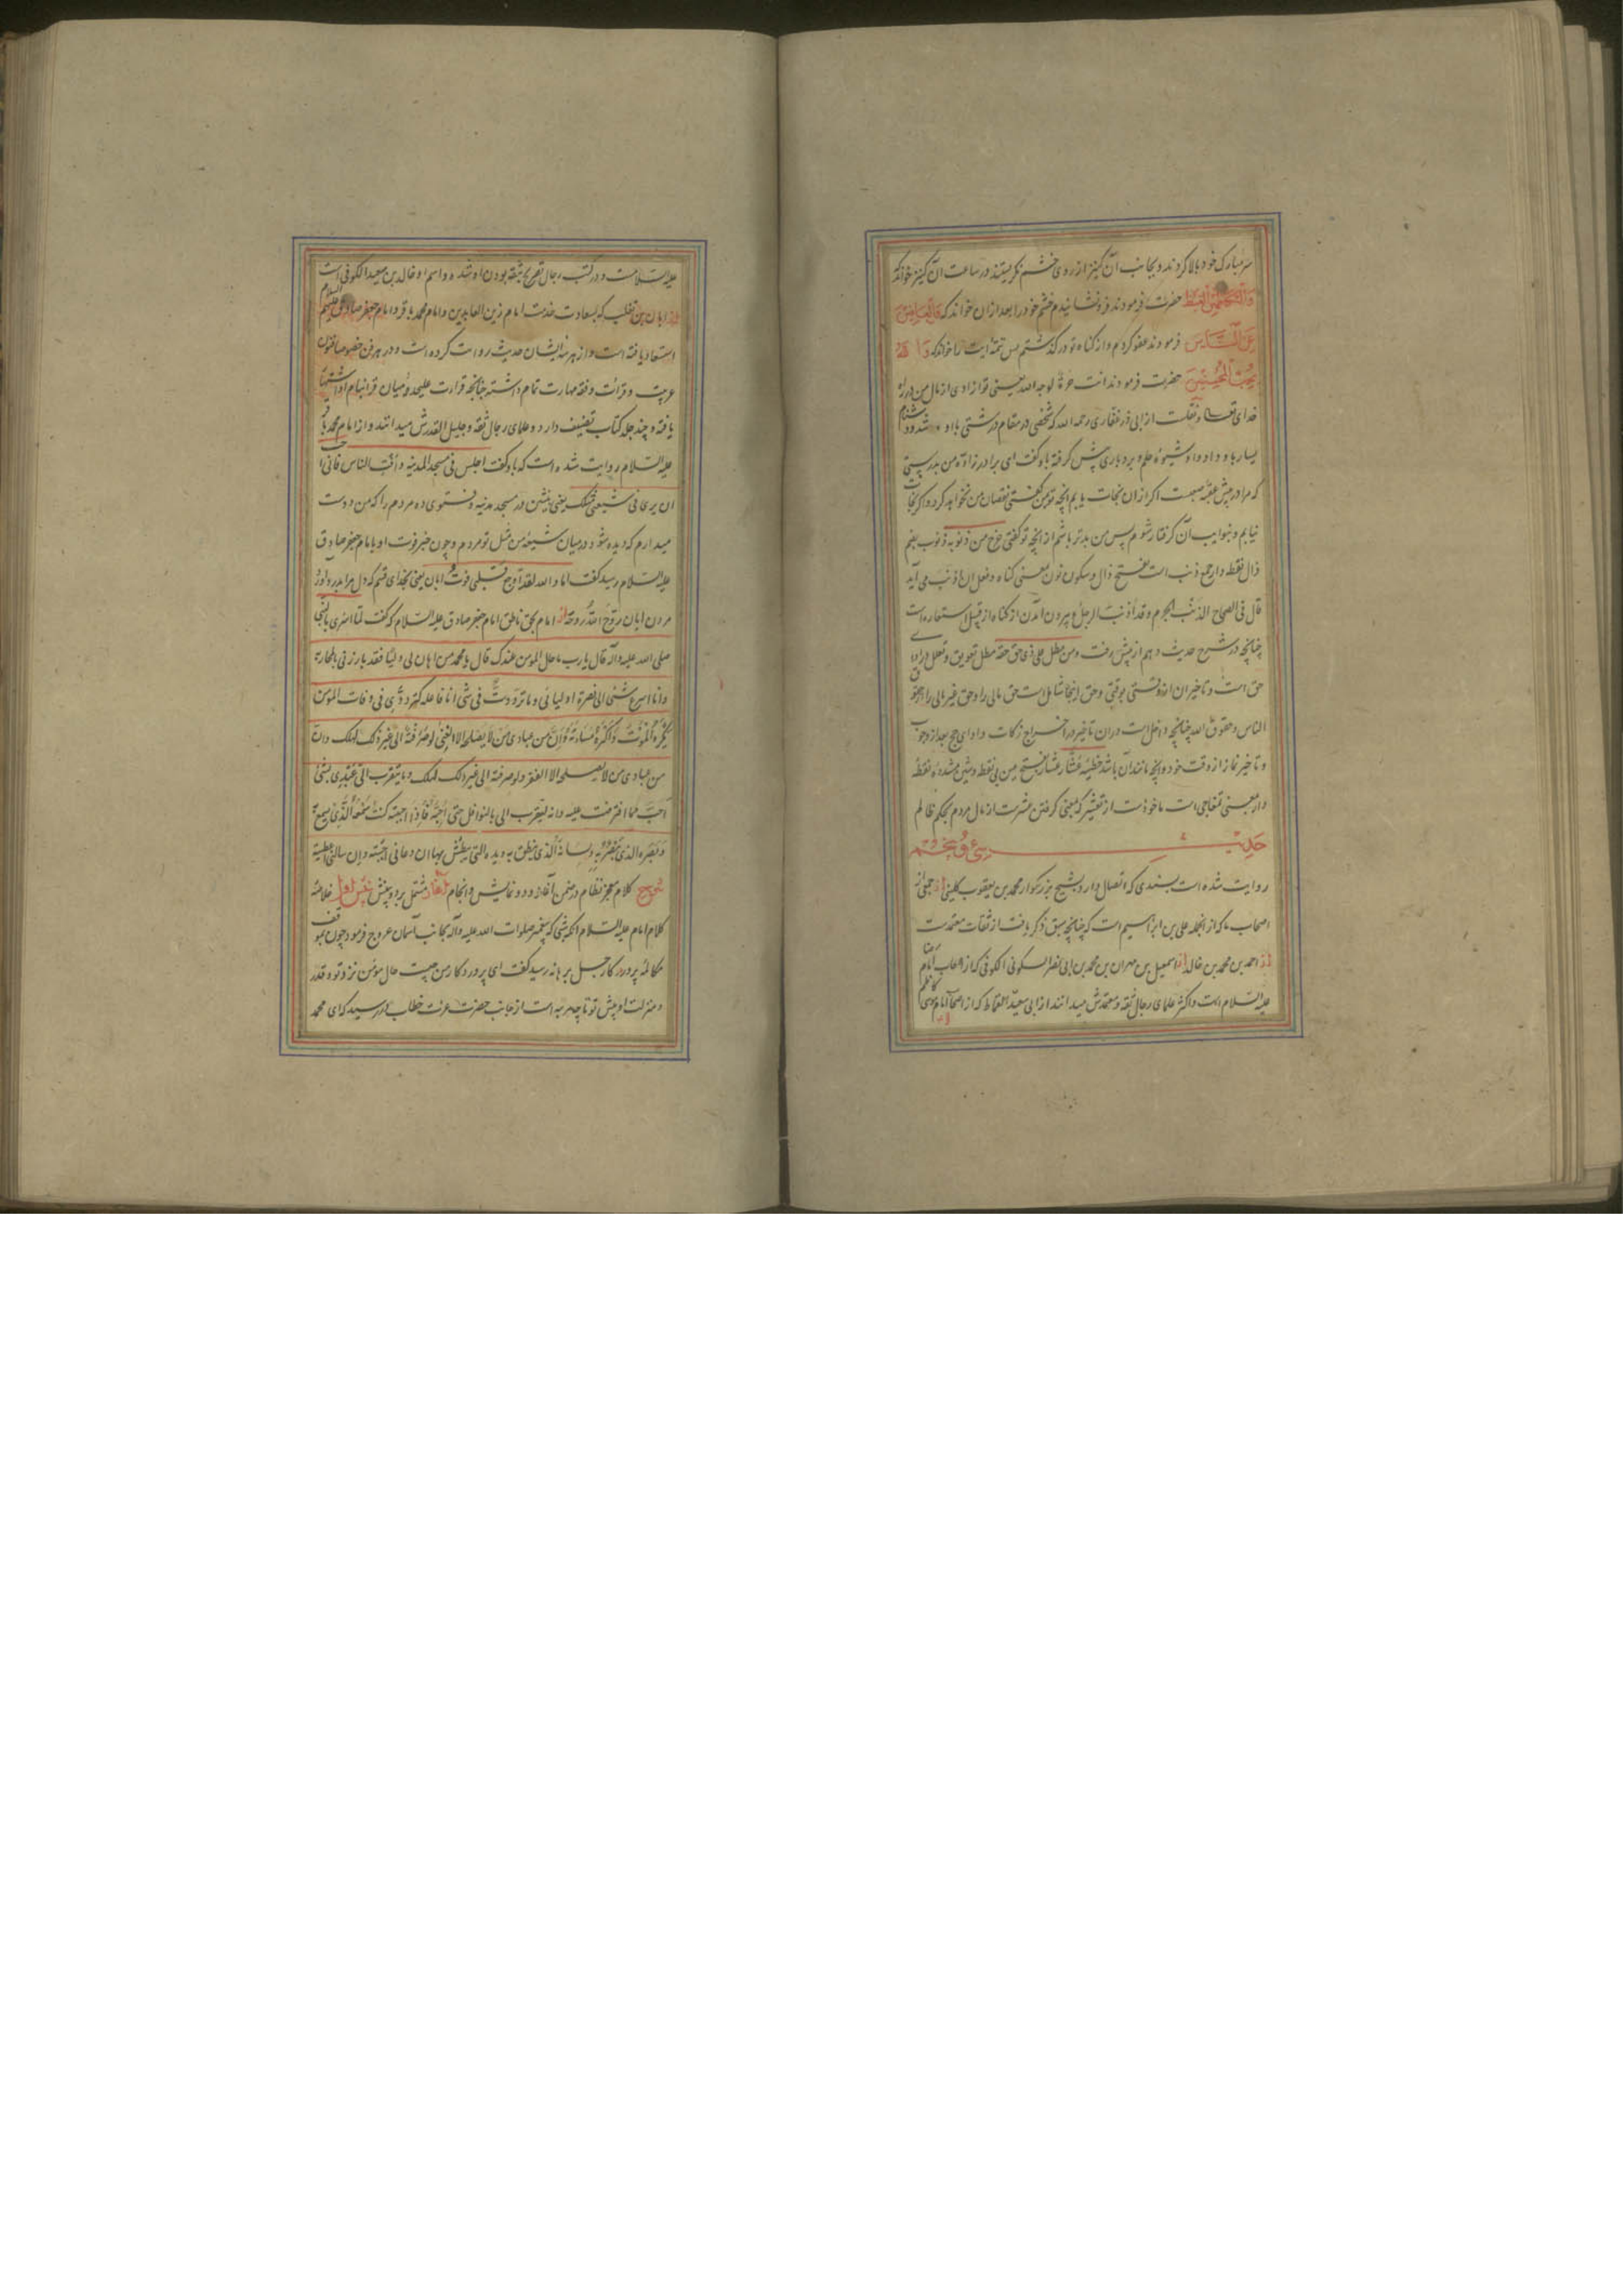 سر مبارک خود بالا کردند و بجانب آن کنیز از روی خشم نکریستند در ساعت آن کنیز خواند که
وَالْكَاظِمِينَ الْغَيْظَ حضرت فرمودند فرو نشانیدم خشم خود را بعد از آن خواند که وَالْعَافِينَ
عَنِ النَّاسِ فرمودند عفو کردم و از کناه تو در کذشتم پس تتمهٔ آیت را خواند که وَاللَّهُ
يُحِبُّ الْمُحْسِنِينَ حضرت فرمودند انت حرة لوجه الله یعنی تو ازادی از مال من در راه
خدای تعالی و نقلست از ابی ذر غفاری رحمه الله که شخصی در مقام درشتی با او شد و دشنام
بسیار باو داد و او شیوهٔ حلم و بردباری پیش کرفته باو کفت ای برادر زادهٔ من بدرستی
که مرا در پیش عقبهٔ صعبست اکر از ان نجات یابم آنچه تو بمن کفتی نقصان من نخواهد کرد و اکر نجات
نیابم و بنوایب آن کرفتار شوم پس من بدتر باشم از آنچه تو کفتی خرج من ذنوبه ذنوب بضم
ذال نقطه دار جمع ذنب است بفتح ذال و سکون نون بمعنی کناه و فعل ان اذنب می آید
قال فی الصحاح الذنب الجرم و قد اذنب الرجل و بیرون آمدن از کناه از قبیل استعاره است
چنانچه در شرح حدیث دهم از پیش رفت و من مطل علی ذی حق حقه مطل تعویق و تعلل در ادای
حق است و تاخیر ان از وقتی بوقتی و حق اینجا شامل است حق مالی را و حق غیر مالی را و حقوق
الناس و حقوق الله چنانچه داخل است در ان تاخیر در اخراج زکات و ادای حج بعد از وجوب
و تاخیر نماز از وقت خود و آنچه مانند آن باشد خطیئة عشار عشار بفتح عین بی نقطه و شین مشدده نقطه
دار بمعنی تمغاچی است ماخوذست از تعشیر که بمعنی کرفتن عشرست از مال مردم بحکم ظالم
حدیث سی و پنجم
روایت شده است بسندی که اتصال دارد بشیخ بزرکوار محمد بن یعقوب کلینی از جمعی از
اصحاب ما که از انجمله علی بن ابراهیم است که چنانچه سبق ذکر یافت از ثقات معتمدست
از احمد بن محمد بن خالد از اسمعیل بن مهران بن محمد بن ابی نصر السکونی الکوفی که از اصحاب امام رضا
علیه السلام است و اکثر علمای رجال ثقه و معتمدش میدانند از ابی سعید القماط که از اصحاب امام موسی کاظم
علیه السلامست و در کتب رجال تصریح بثقه بودن او شده و اسم او خالد بن سعید الکوفی است
از ابان بن تغلب که بسعادت خدمت امام زین العابدین و امام محمد باقر و امام جعفر صادق علیهم السلام
استسعاد یافته است و از هر سه ایشان حدیث روایت کرده است و در هر فن خصوصا فنون
عربیت و قرائت و فقه مهارت تمام داشته چنانچه قرائت علیحده میان قرا بنام او اشتهار
یافته و چند جلد کتاب تصنیف دارد و علمای رجال ثقه و جلیل القدرش میدانند و از امام محمد باقر
علیه السلام روایت شده است که باو کفت اجلس فی مسجد المدینه و افت الناس فانی احب
ان یری فی شیعتی مثلک یعنی بنشین در مسجد مدینه و فتوی ده مردم را که من دوست
میدارم که دیده شود در میان شیعهٔ من مثل تو مردم و چون خبر فوت او بامام جعفر صادق
علیه السلام رسید کفت اما والله لقد اوجع قلبی موت ابان یعنی بخدای قسم که دل مرا بدرد آورد
مردن ابان روح الله روحه از امام بحق ناطق امام جعفر صادق علیه السلام که کفت لما اسری بالنبی
صلی الله علیه و آله قال یا رب ما حال المومن عندک قال یا محمد من اهان لی ولیا فقد بارزنی بالمحاربة
وانا اسرع شئ الی نصرة اولیائی وما ترددت فی شئ انا فاعله کترددی فی وفات المومن
یَکْرَهُ الْمَوْتَ وَاَکْرَهُ مَسَاءَتَهُ وَاِنَّ من عبادی مَن لا یُصْلِحُه الا الغنی ولو صَرَفْتُهُ الی غیر ذلک لهلک وان
من عبادی من لا یصلحه الا الفقر ولو صرفته الی غیر ذلک لهلک وما یتقرب الی عَبْدِی بشئ
احب مما افترضت علیه وانه لیتقرب الی بالنوافل حتی اُحِبَّهُ فَاِذا احببته کنت سَمْعَهُ الَّذِی یسمع به
وَبَصَرَه الذی یُبْصِرُ به ولسانه الذی ینطق به ویده التی یبطش بها ان دعانی اجبته وان سالنی اعطیته
شرح کلام معجز نظام در ضمن آغاز و دو نمایش و انجام آغاز مشتمل بر دو بینش بینش اول خلاصهٔ
کلام امام علیه السلام آنکه شبی که پیغمبر صلوات الله علیه و آله بجانب آسمان عروج فرمود چون بموقف
مکالمهٔ پروردکار جل برهانه رسید کفت ای پروردکار من چیست حال مؤمن نزد تو و قدر
و منزلت او پیش تو تا چه مرتبه است از جانب حضرت عزت خطاب در رسید که ای محمد